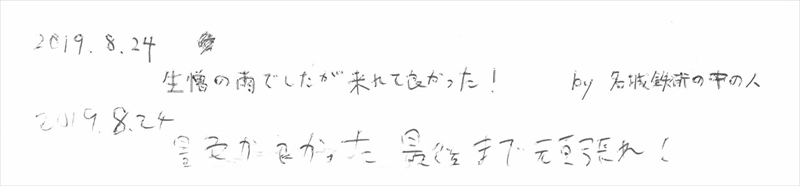 2019.8.24
生憎の雨でしたが来れて良かった! by 名城鉄研の中の人
2019.8.24
景色が良かった 最後まで頑張れ!